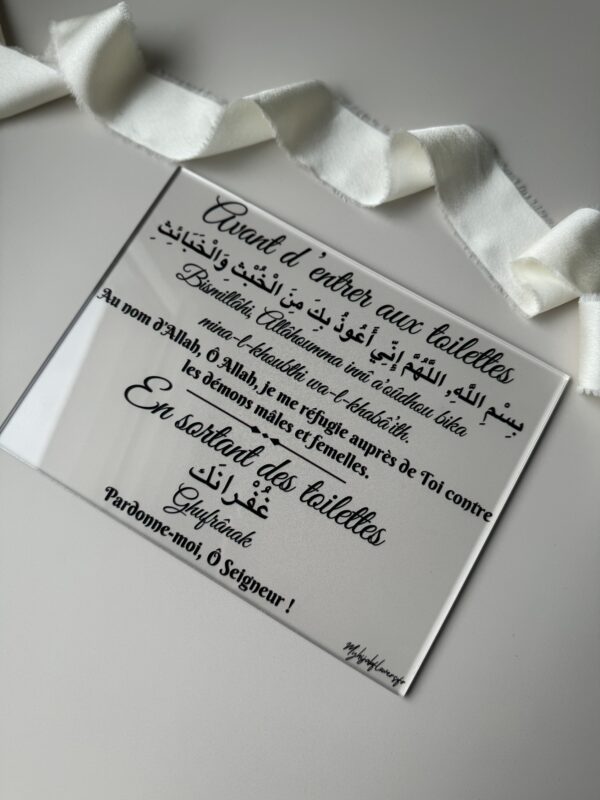 Avant d'entrer aux toilettes
بِسْمِ اللَّهِ, اللَّهُمَّ إِنِّي أَعُوذُ بِكَ مِنَ الْخُبْثِ وَالْخَبَائِثِ
Bismillâhi, Allâhoumma innî a'oûdhou bika
mina-l-khoubthi wa-l-khabâ'ith.
Au nom d'Allah, Ô Allah, je me réfugie auprès de Toi contre
les démons mâles et femelles.
En sortant des toilettes
غُفْرانَك
Ghufrânak
Pardonne-moi, Ô Seigneur !